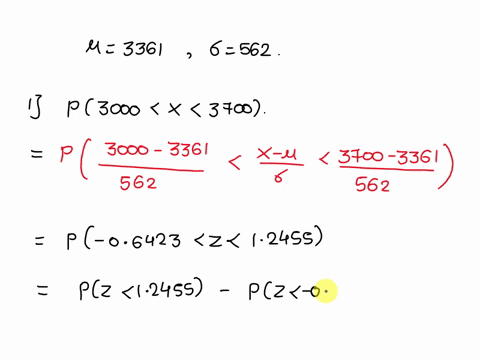 μ = 3361 , σ = 562.
1] P(3000 < x < 3700).
= P( (3000 - 3361)/562 < (x-μ)/σ < (3700 - 3361)/562 )
= P(-0.6423 < z < 1.2455)
= P(z < 1.2455) - P(z < -0.